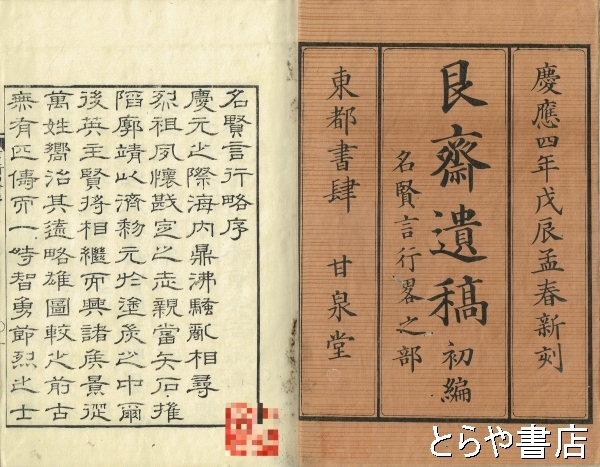 慶應四年戊辰孟春新刻
艮齋遺稿初編
名賢言行畧之部
東都書肆 甘泉堂
名賢言行略序
慶元之際海内鼎沸騷亂相尋
烈祖夙懷戡定之志親當矢石摧
陷廓靖以濟黎元於塗炭之中爾
後英主賢將相繼而興諸侯景從
萬姓嚮治其遠略雄圖較之前古
無有匹儔而一時智勇節烈之士
とらや書店